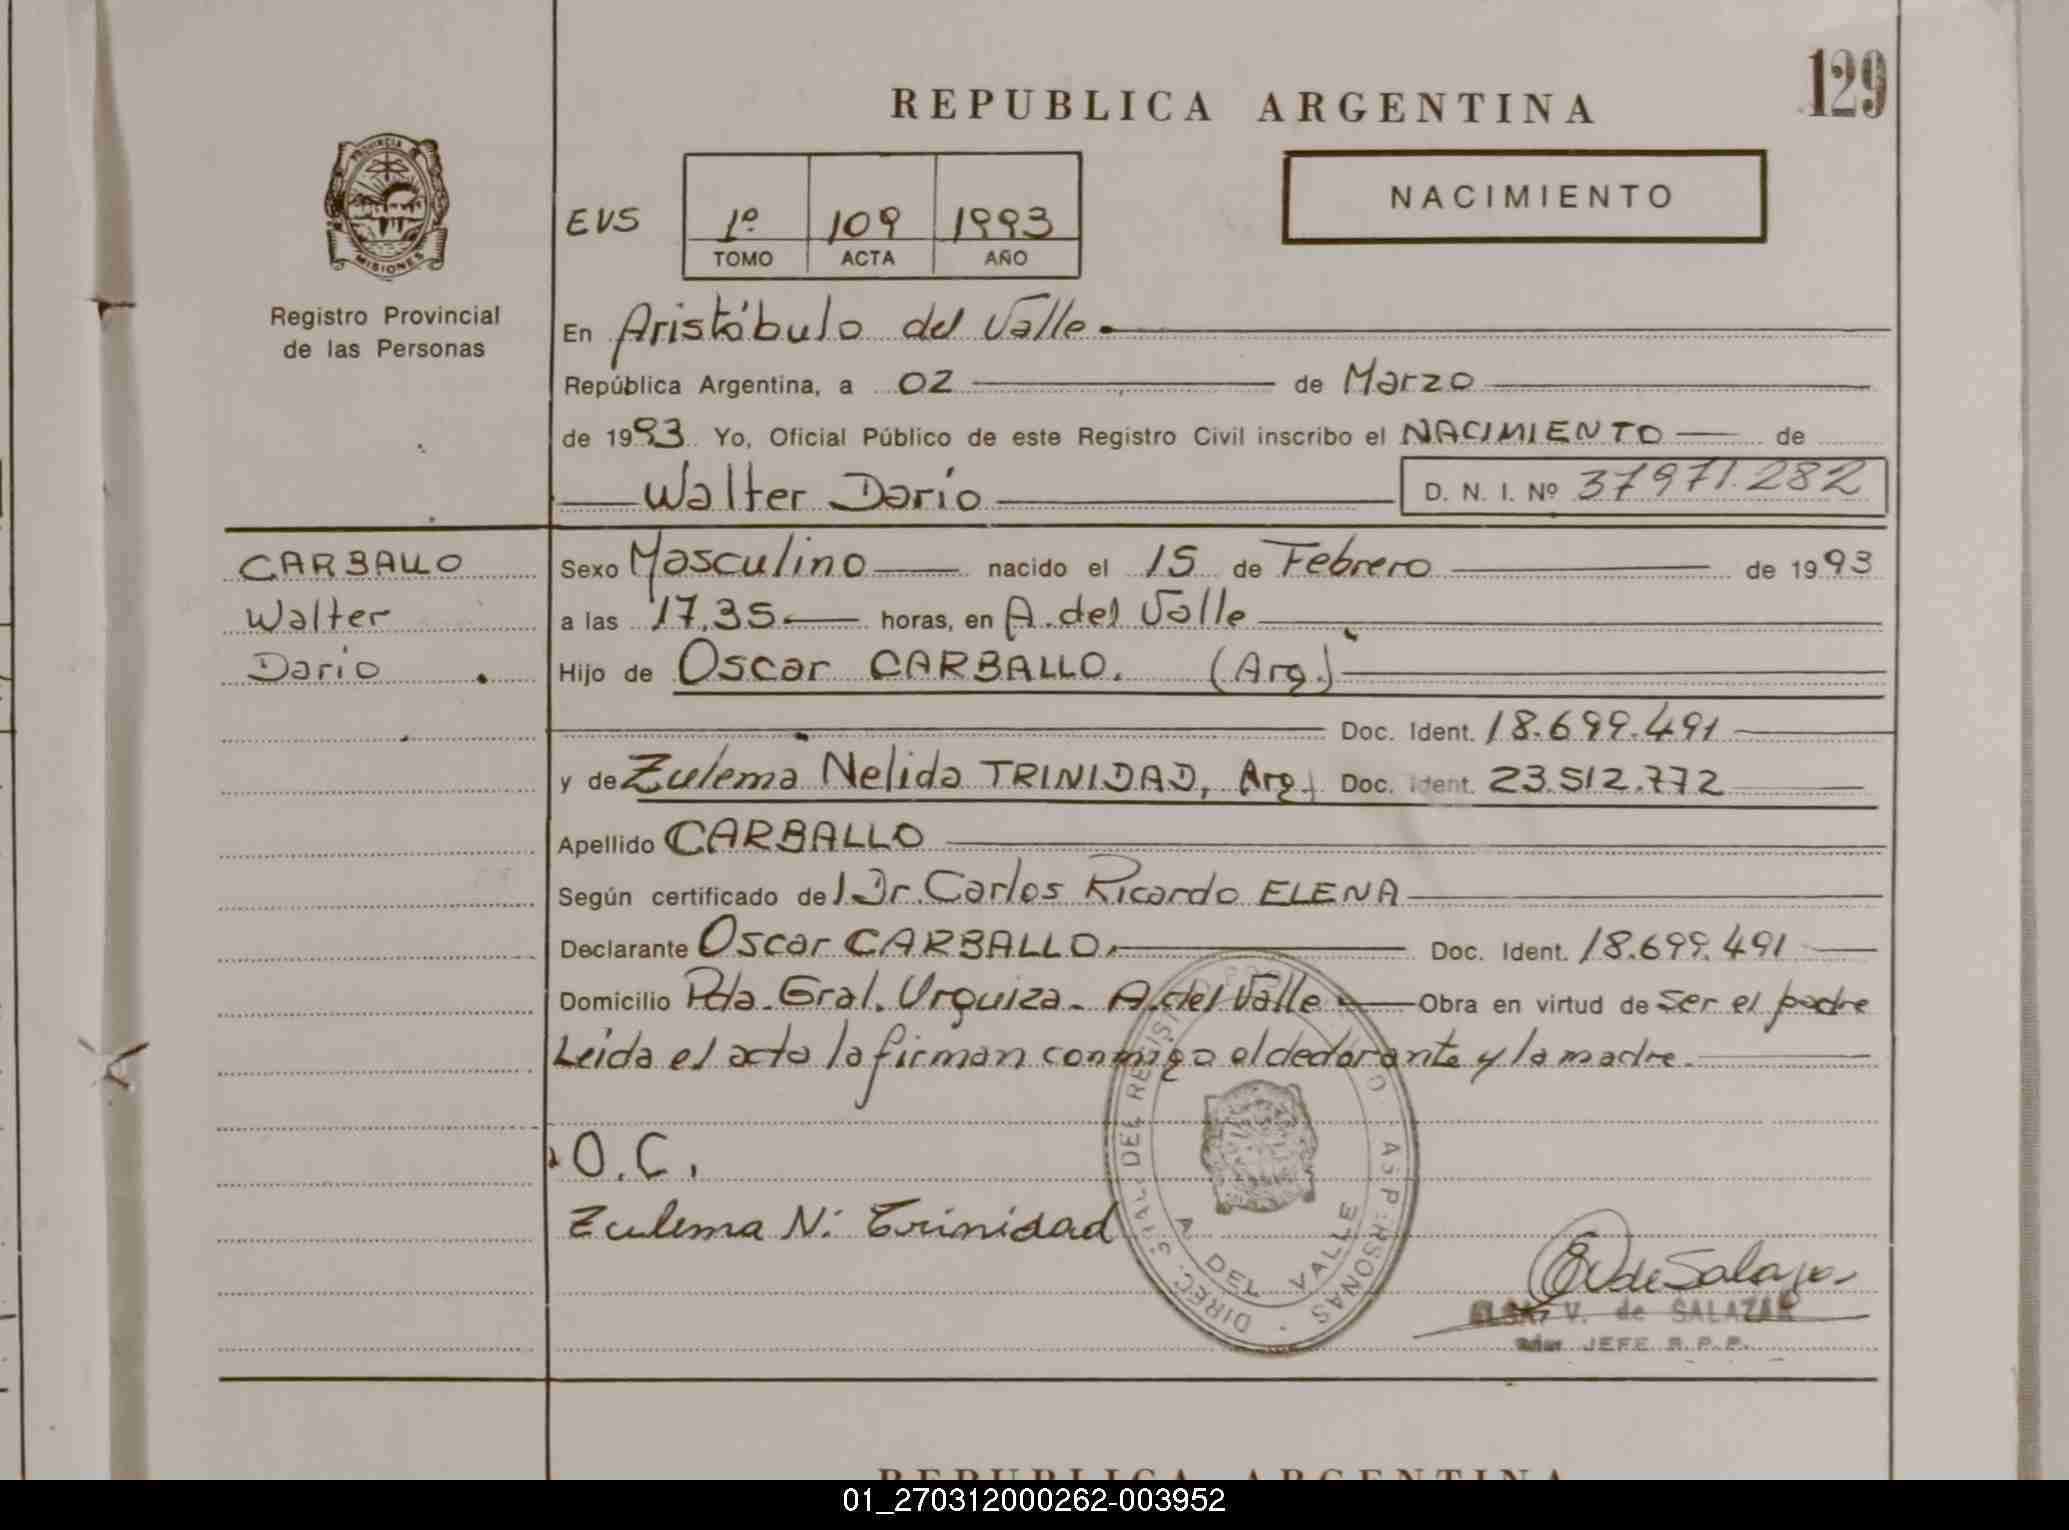 129
REPUBLICA ARGENTINA
NACIMIENTO
PROVINCIA DE
MISIONES
Registro Provincial
de las Personas
EVS
1º 109 1993
TOMO ACTA AÑO
En Aristóbulo del Valle
República Argentina, a 02 de Marzo
de 1993 Yo, Oficial Público de este Registro Civil inscribo el NACIMIENTO de
Walter Dario D. N. I. Nº 37971.282
CARBALLO
Walter
Dario
Sexo Masculino nacido el 15 de Febrero de 1993
a las 17,35 horas, en A. del Valle
Hijo de Oscar CARBALLO. (Arg.)
Doc. Ident. 18.699.491
y de Zulema Nelida TRINIDAD, Arg. Doc. Ident. 23.512.772
Apellido CARBALLO
Según certificado del Dr. Carlos Ricardo ELENA
Declarante Oscar CARBALLO, Doc. Ident. 18.699.491
Domicilio Pda. Gral. Urquiza - A. del Valle Obra en virtud de ser el padre
Leida el acta la firman conmigo el declarante y la madre.
O.C.
Zulema N. Trinidad
DIREC. GRAL. DEL REGIST PERSONAS
A DEL VALLE
EV de Salazar
ELSA V. de SALAZAR
JEFE R.P.P.
REPUBLICA ARGENTINA
01_270312000262-003952